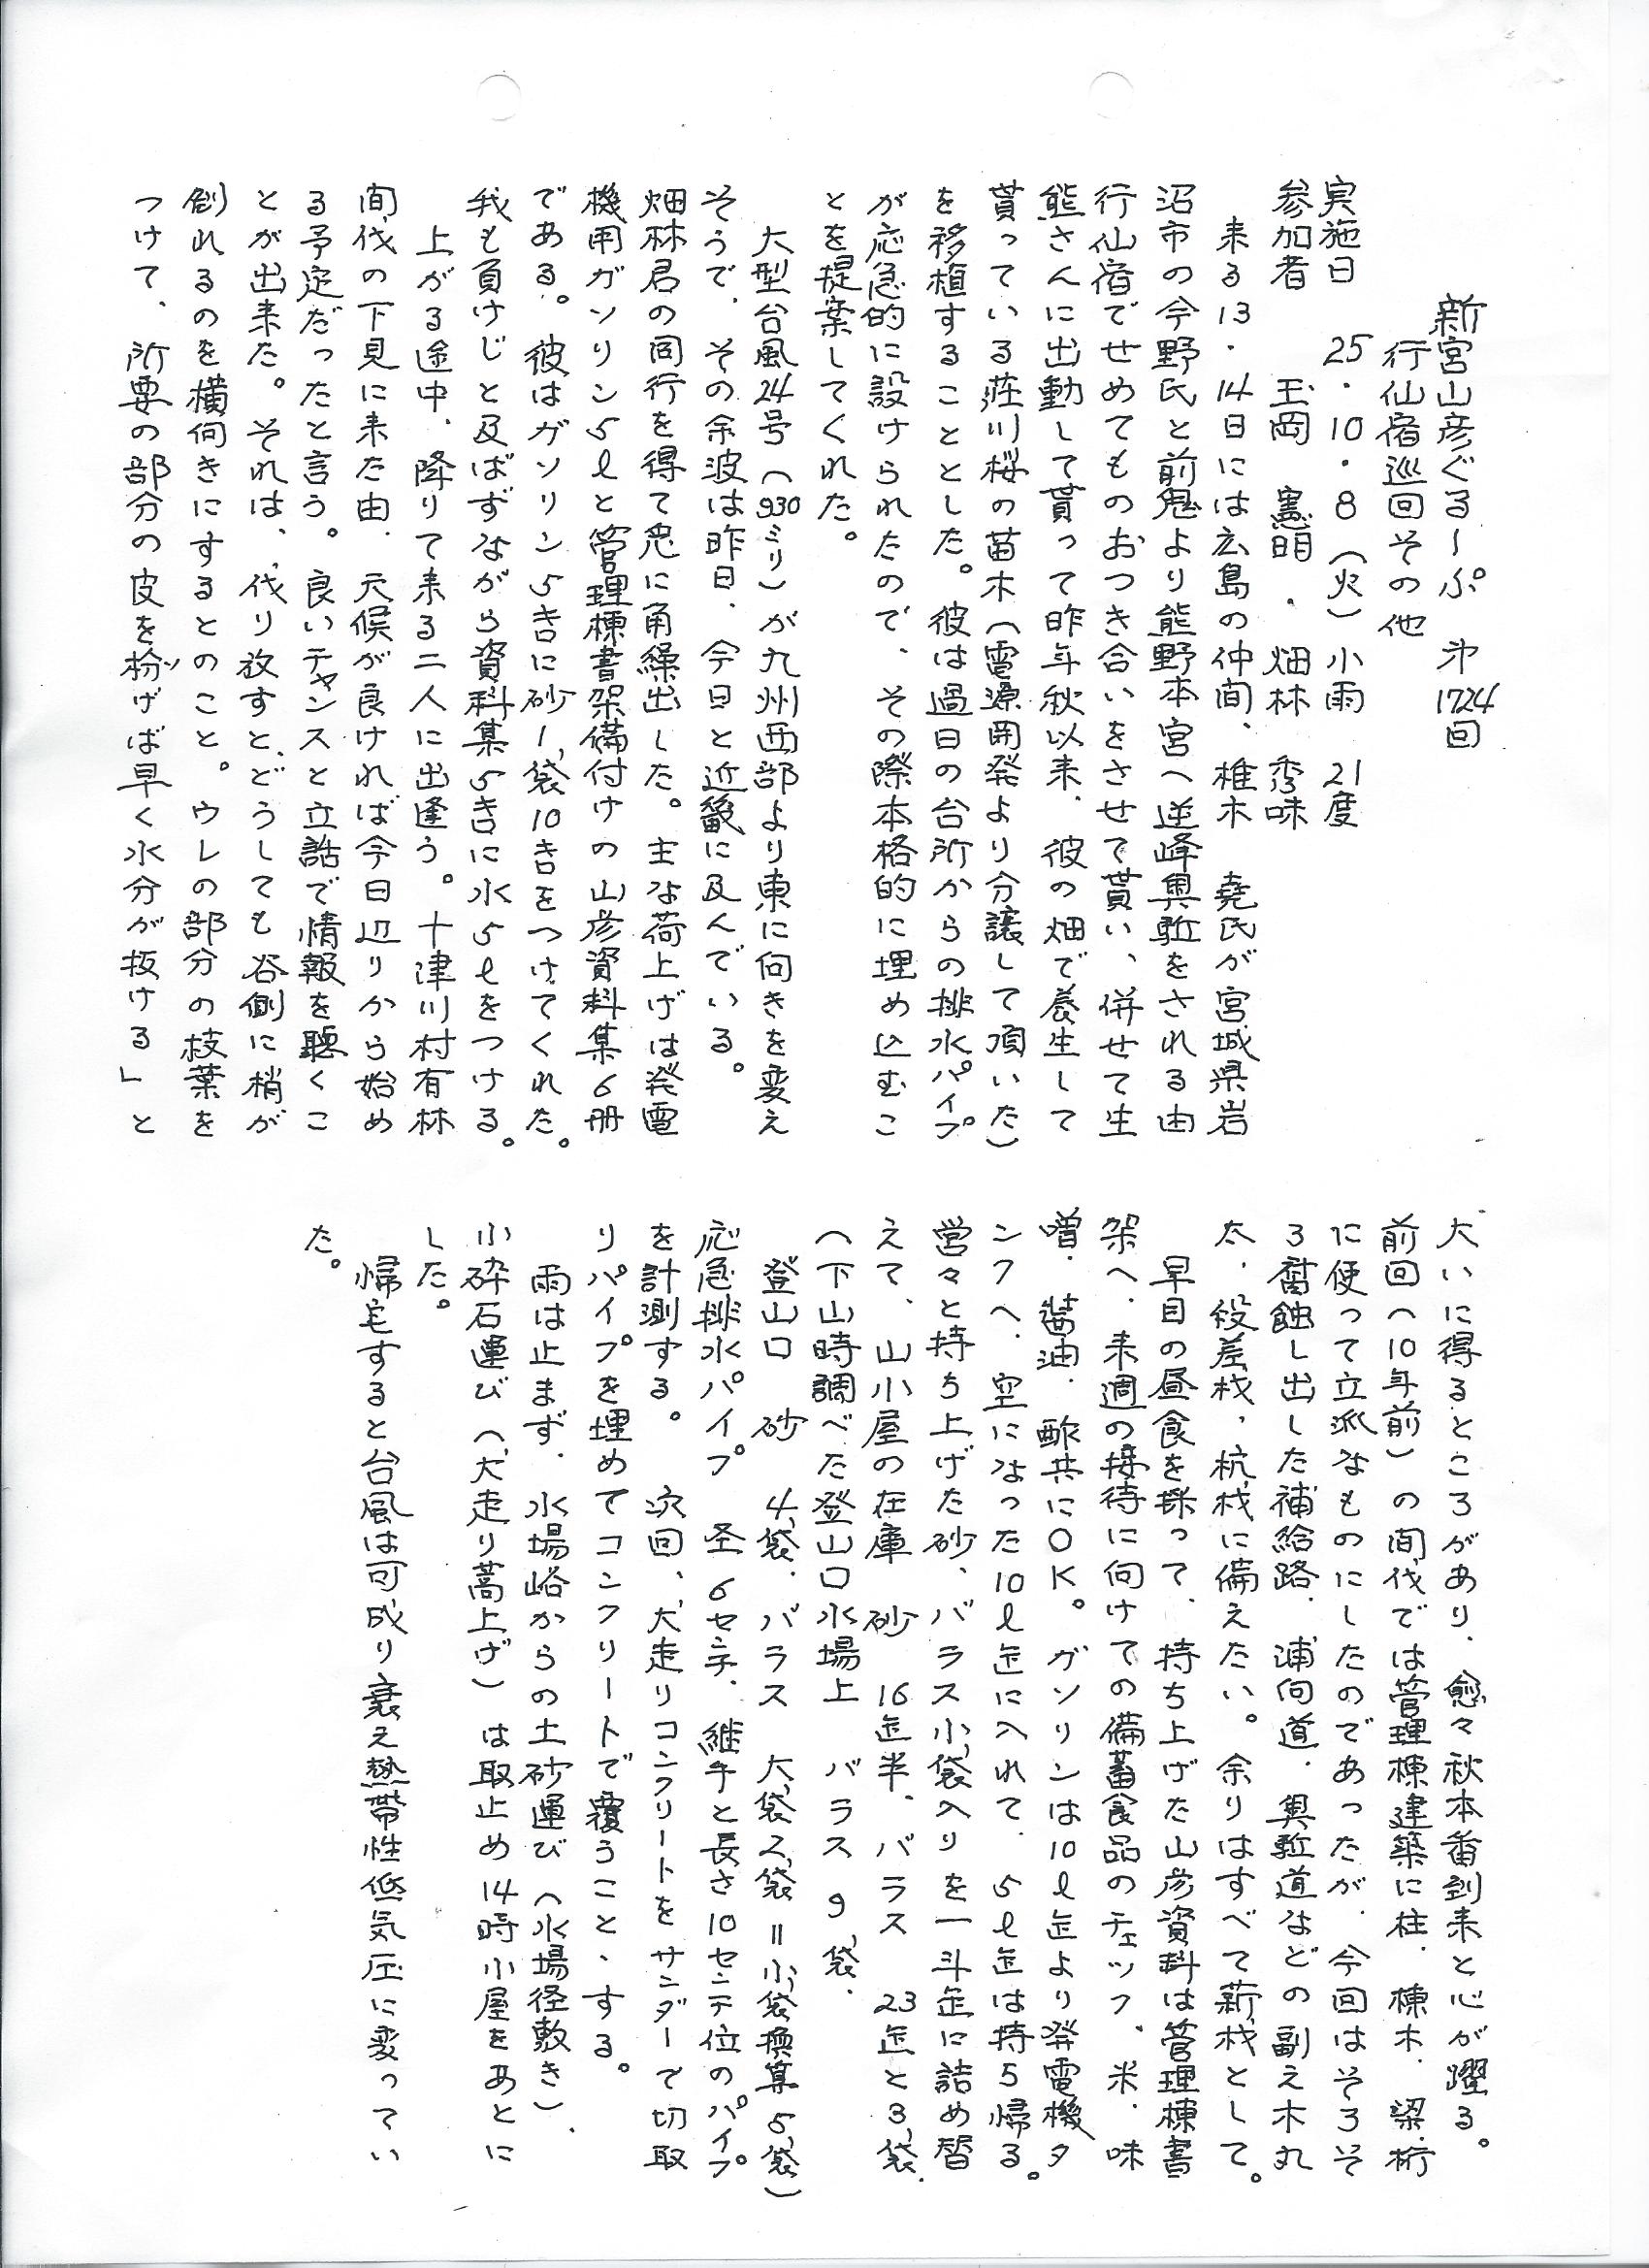 新宮山彦ぐる〜ぷ 第1724回
行仙宿巡回その他
実施日 25・10・8（火）小雨 21度
参加者 玉岡 憲明・畑林 秀味
来る13・14日には広島の仲間、椎木 堯氏が宮城県岩
沼市の今野氏と前鬼より熊野本宮へ逆峰奥駈をされる由
行仙宿でせめてものおつき合いをさせて貰い、併せて生
熊さんに出動して貰って昨年秋以来、彼の畑で養生して
貰っている荘川桜の苗木（電源開発より分譲して頂いた）
を移植することとした。彼は過日の台所からの排水パイプ
が応急的に設けられたので、その際本格的に埋め込むこ
とを提案してくれた。
大型台風24号（930ミリ）が九州西部より東に向きを変え
そうで、その余波は昨日、今日と近畿に及んでいる。
畑林君の同行を得て兎に角繰出した。主な荷上げは発電
機用ガソリン5ℓと管理棟書架備付けの山彦資料集6冊
である。彼はガソリン5キロに砂1袋10キロをつけてくれた。
我も負けじと及ばずながら資料集5キロに水5ℓをつける。
上がる途中、降りて来る二人に出逢う。十津川村有林
間伐の下見に来た由、天候が良ければ今日辺りから始め
る予定だったと言う。良いチャンスと立話で情報を聴くこ
とが出来た。それは、伐り放すと、どうしても谷側に梢が
倒れるのを横向きにするとのこと。ウレの部分の枝葉を
つけて、所要の部分の皮を枌げば早く水分が抜ける」と
大いに得るところがあり、愈々秋本番到来と心が躍る。
前回（10年前）の間伐では管理棟建築に柱、棟木、梁、桁
に使って立派なものにしたのであったが、今回はそろそ
ろ腐蝕し出した補給路、浦向道、奥駈道などの副え木丸
太、段差材、杭材に備えたい。余りはすべて薪材として。
早目の昼食を採って、持ち上げた山彦資料は管理棟書
架へ、来週の接待に向けての備蓄食品のチェック、米、味
噌、醤油、酢共にOK。ガソリンは10ℓ缶より発電機タ
ンクへ、空になった10ℓ缶に入れて、5ℓ缶は持ち帰る。
営々と持ち上げた砂、バラス小袋入りを一斗缶に詰め替
えて、山小屋の在庫 砂 16缶半、バラス 23缶と3袋、
（下山時調べた登山口水場上 バラス 9袋、
登山口 砂 4袋、バラス 大袋2袋＝小袋換算5袋）
応急排水パイプ 径6センチ、継手と長さ10センチ位のパイプ
を計測する。次回、犬走りコンクリートをサンダーで切取
りパイプを埋めてコンクリートで覆うこと、する。
雨は止まず、水場峪からの土砂運び（水場径敷き）、
小砕石運び（犬走り嵩上げ）は取止め14時小屋をあとに
した。
帰宅すると台風は可成り衰え熱帯性低気圧に変ってい
た。